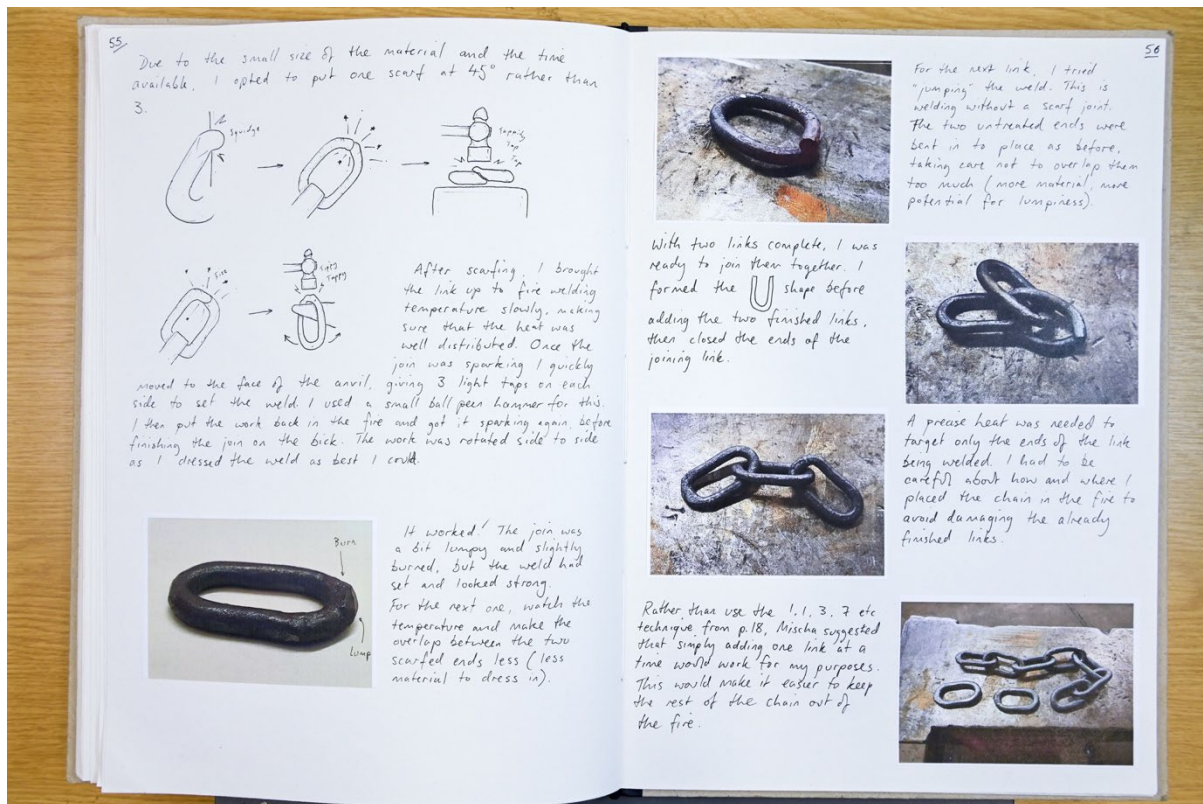 55
Due to the small size of the material and the time
available, I opted to put one scarf at 45° rather than
3.
Squidge
Tap
Tap
After scarfing, I brought
the link up to fire welding
temperature slowly, making
sure that the heat was
well distributed. Once the
join was sparking I quickly
moved to the face of the anvil, giving 3 light taps on each
side to set the weld. I used a small ball peen hammer for this.
I then put the work back in the fire and got it sparking again, before
finishing the join on the bick. The work was rotated side to side
as I dressed the weld as best I could.
It worked! The join was
a bit lumpy and slightly
burned, but the weld had
set and looked strong.
For the next one, watch the
temperature and make the
overlap between the two
scarfed ends less (less
material to dress in).
Burn
Lump
56
For the next link, I tried
"jumping" the weld. This is
welding without a scarf joint.
The two untreated ends were
beat in to place as before,
taking care not to overlap them
too much (more material, more
potential for lumpiness).
With two links complete, I was
ready to join them together. I
formed the shape before
adding the two finished links,
then closed the ends of the
joining link.
A precise heat was needed to
target only the ends of the link
being welded. I had to be
careful about how and where I
placed the chain in the fire to
avoid damaging the already
finished links.
Rather than use the 1, 1, 3, 7 etc
technique from p.18, Mischa suggested
that simply adding one link at a
time would work for my purposes.
This would make it easier to keep
the rest of the chain out of
the fire.